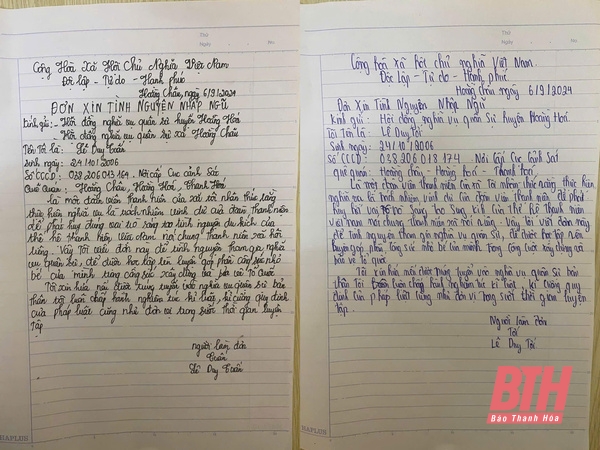 Thứ
Ngày No
Cộng Hòa Xã Hội Chủ Nghĩa Việt Nam
Độc lập - Tự do - Hạnh phúc
Hoằng Châu, ngày 6/9/2024
ĐƠN XIN TÌNH NGUYỆN NHẬP NGŨ
Kính gửi: - Hội đồng nghĩa vụ quân sự huyện Hoằng Hoá
- Hội đồng nghĩa vụ quân sự xã Hoằng Châu
Tên Tôi là: Lê Duy Tuấn
Sinh ngày: 24/10/2006
Số CCCD: 038 206 013 164. Nơi cấp Cục cảnh Sát
Quê Quán: Hoằng Châu, Hoằng Hoá, Thanh Hoá
là một đoàn viên thanh niên của xã, tôi nhận thức rằng
thực hiện nghĩa vụ là trách nhiệm vinh dự của đoàn thanh niên
để phát huy đúng vai trò sáng tạo tình nguyện du kích của
thế hệ thanh niên Việt Nam nói chung Thanh niên xã nói
riêng. Vậy Tôi viết đơn này để tình nguyện tham gia nghĩa
vụ quân sự, để được học tập rèn luyện góp phần công sức nhỏ
bé của mình trong công cuộc xây dựng và bảo vệ Tổ Quốc
Tôi xin hứa nếu được trúng tuyển vào nghĩa vụ quân sự bản
thân tôi luôn chấp hành nghiêm túc kỉ luật, kỉ cương quy định
của pháp luật cũng như đơn vị trong suốt thời gian luyện
tập
người làm đơn
Tuấn
Lê Duy Tuấn
HAPLUS
Thứ
Ngày No
Cộng hoà xã hội chủ nghĩa Việt Nam
Độc lập - Tự do - Hạnh phúc
Hoằng Châu ngày 6/9/2024
Đơn Xin Tình Nguyện Nhập Ngũ
Kính gửi: Hội đồng nghĩa vụ quân Sự huyện Hoằng Hoá.
Tôi Tên là: Lê Duy Tố
Sinh ngày: 24/10/2006
Số CCCD: 038 206 013 174. Nơi Cấp Cục Cảnh Sát
quê quán: Hoằng Châu - Hoằng hoá - Thanh Hoá
Là một đoàn viên thanh niên của xã Tôi nhận thức rằng, thực hiện
nghĩa vụ là trách nhiệm vinh dự của đoàn Thanh niên. Để phát
huy vai trò Sáng tạo Sung kích của thế hệ Thanh niên
việt nam nói chung thanh niên xã nói riêng. Vậy tôi viết đơn này
để Tình nguyện tham gia nghĩa vụ quân Sự, để được học tập rèn
luyện góp phần công sức nhỏ bé của mình trong công cuộc xây dựng và
bảo vệ tổ quốc
Tôi xin hứa nếu được trúng tuyển vào nghĩa vụ quân Sự bản
thân Tôi luôn chấp hành nghiêm túc kỉ luật, kỉ cương quy
định của pháp luật cũng như đơn vị trong suốt thời gian luyện
tập.
Người làm đơn
Tố
Lê Duy Tố
HAPLUS
BTH
Báo Thanh Hóa